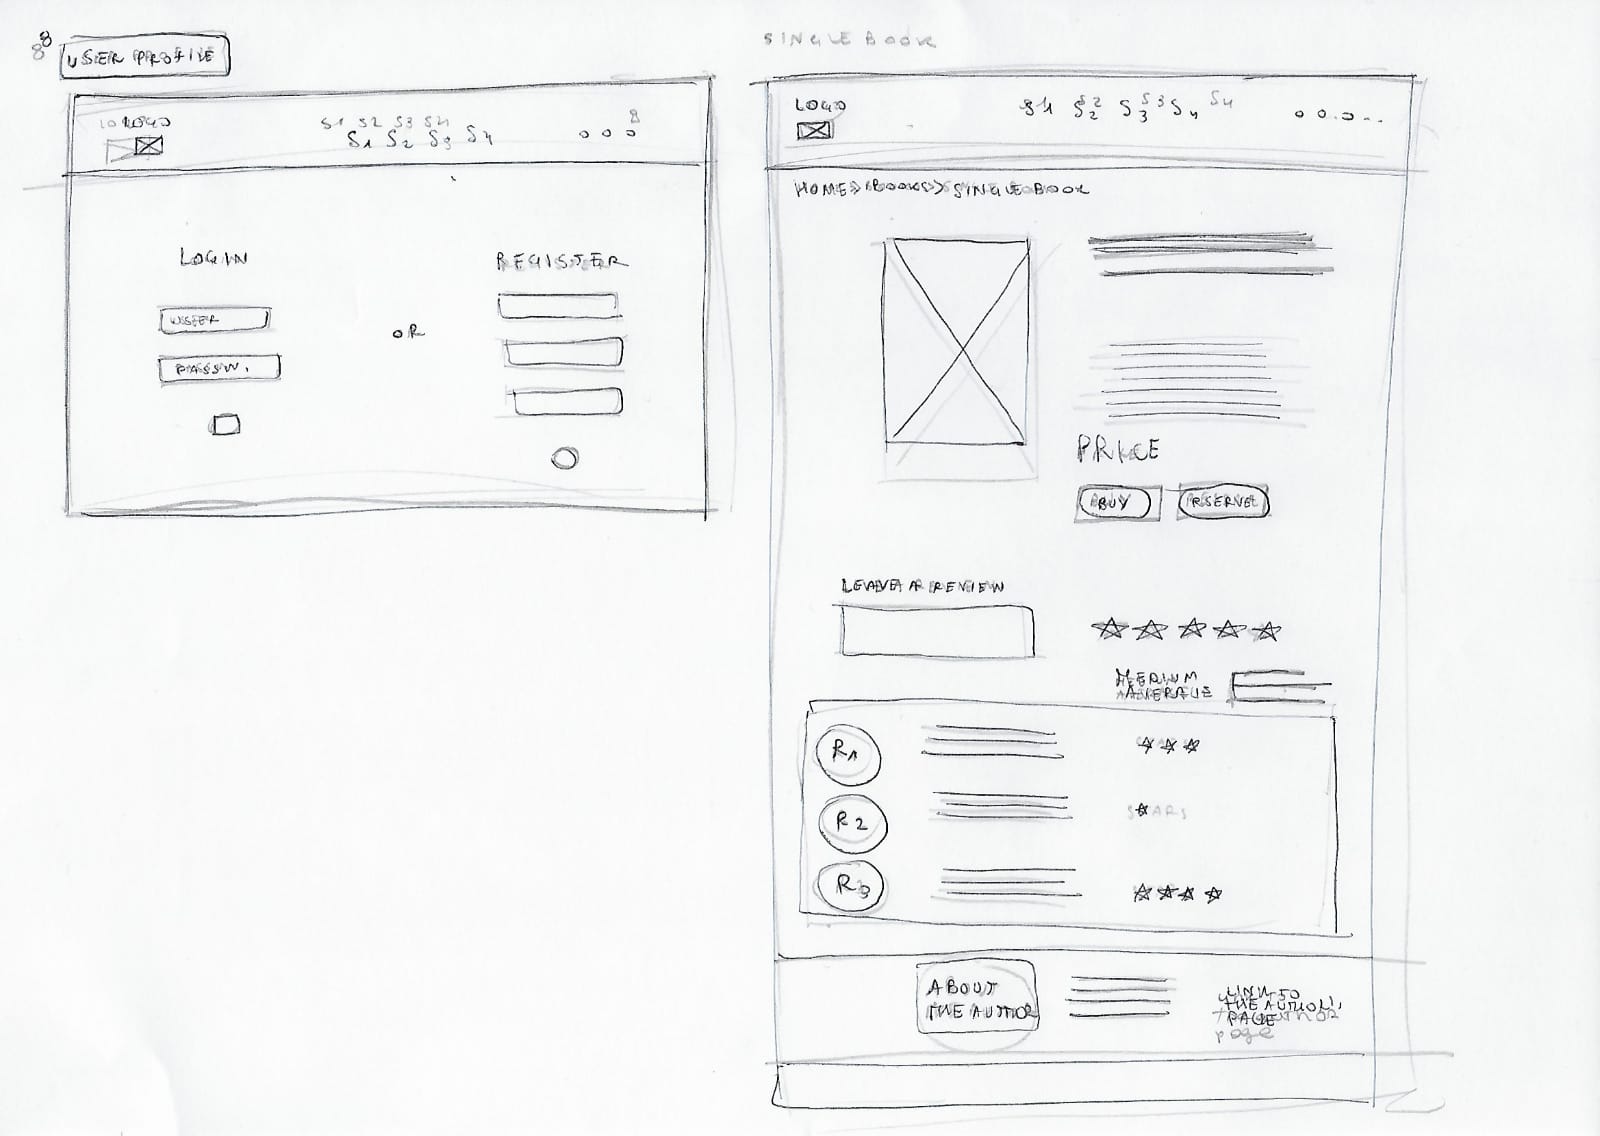 8 8
USER PROFILE
LOGO
S1 S2 S3 S4
S1 S2 S3 S4
8
LOGIN
USER
PASSW.
OR
REGISTER
SINGLE BOOK
LOGO
S1 S2 S3 S4
HOME>>BOOKS>>SINGLE BOOK
PRICE
BUY
RESERVE
LEAVE A REVIEW
MEDIUM
AVERAGE
R1
R2
STARS
R3
ABOUT
THE AUTHOR
LINK TO
THE AUTHOR
PAGE
page